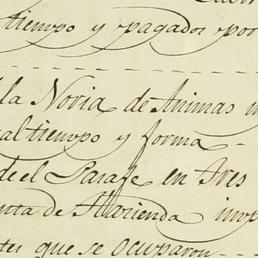 tiempo y pagados por
la Noria de Animas
al tiempo y forma
de el Parage en Tres
de Hazienda
que se ocuparon